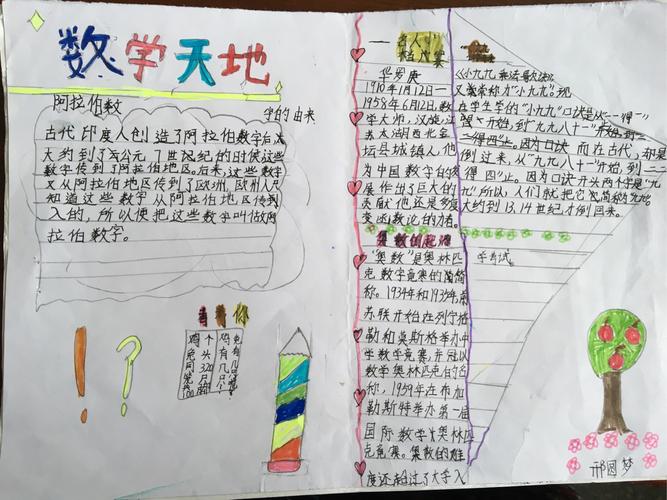 数学天地
阿拉伯数
字的由来
古代印度人创造了阿拉伯数字后,
大约到了公元7世纪的时侯这些
数字传到了阿拉伯地区。后来,这些数字
又从阿拉伯地区传到了欧洲,欧州人只
知道这些数字从阿拉伯地区传到
入的,所以便把这些数字叫做阿
拉伯数字。
猜 你
个头320只脚100
鸡有几只
名人
档案
华罗庚
1910年11月12日一
1958年6月12日,数
学大师,汉族,江
苏太湖西北金
坛县城镇人,他
为中国数字的发
展作出了巨大的
贡献他还是多复
变函数论的
奥数的起源
"奥数"是奥林匹
克数字竞赛的简
称。1934年和1935年,前
苏联开始在列宁格
勒和莫斯格举办中
学数学竞赛,并冠以
数学奥林匹克的名
称,1959年在布加
勒斯特举办第一届
国际数学奥林匹
克竞赛。奥数的难
度还超过了大学入
学考试。
《小九九乘法
又常称为"小九九"。现
在学生学的"小九九"口诀是从"一一得一"
开始,到"九九八十一"
而在古代,却是
倒过来,从"九九八十一"开始,到"二二
得四"止。因为口诀开头两个字是"九
九"所以,人们就把它简称为"九九"。
大约到13、14世纪才倒回来。
邢圆梦